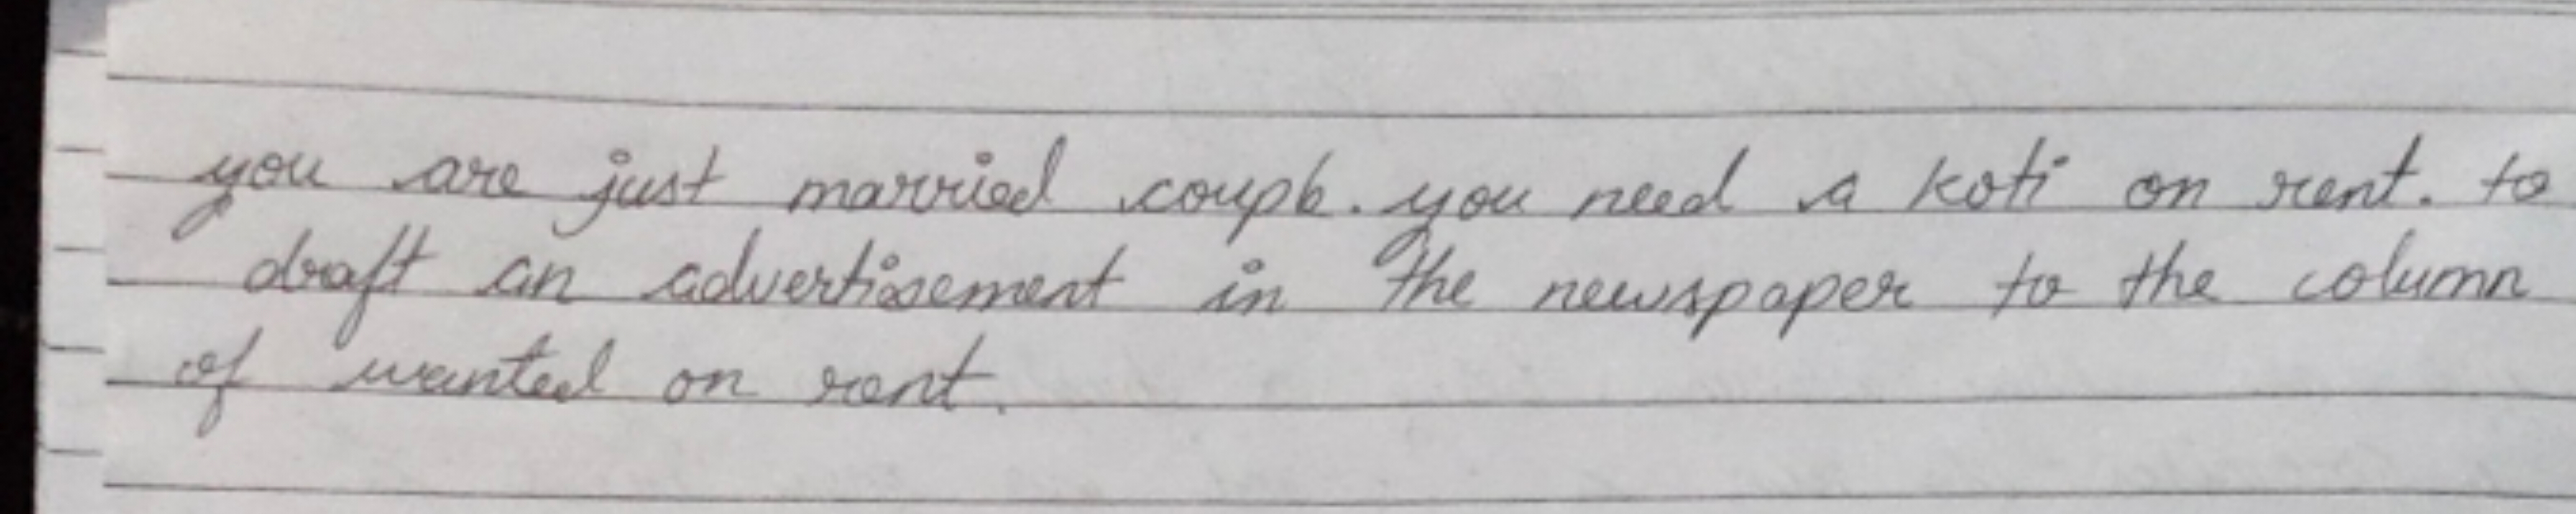 you are just married couple. you need a koti on rent. to
draft an advertisement in the newspaper to the column
of wanted on rent.